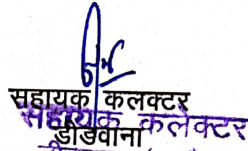 सहायक कलक्टर
सहायक कलेक्टर
डीडवाना